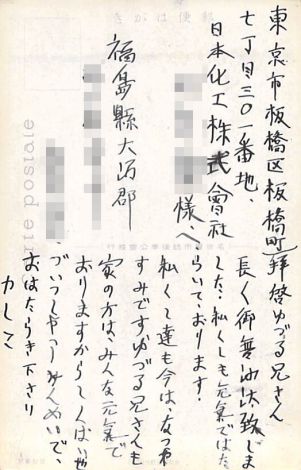 きがは便郵
東京市板橋区板橋町
七丁目三〇一番地、
日本化工株式會社
様へ
福島縣大沼郡
carte postale
拝啓ゆづる兄さん
長く御無沙汰致しま
した。私くしも元氣ではた
らいて、おります。
私くし達も今は、なつや
すみですゆづる兄さんも
家の方は、みんな元氣で
おりますからしんぱいや
ごいつしやうけんめいで、
おはたらき下さい
かしこ